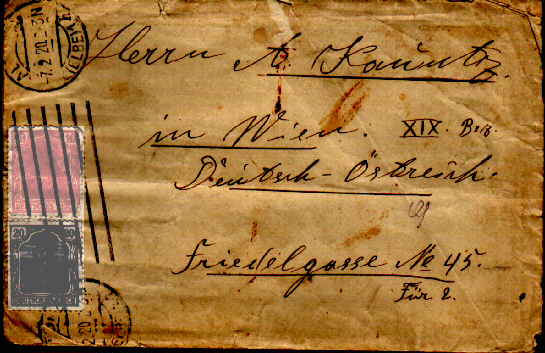 7.2.20.
Herrn A. Kaunitz.
in Wien. XIX. Bez.
Deutsch-Östreich.
Friedelgasse No 45.
Tür 2.
20